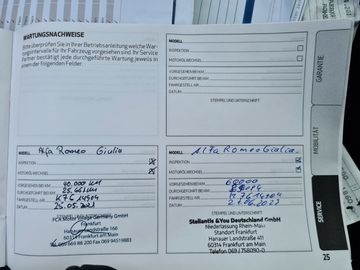 WARTUNGSNACHWEISE
Bitte überprüfen Sie in Ihrer Betriebsanleitung welche War-
tungsintervalle für Ihr Fahrzeug vorgesehen sind. Ihr Service
Partner bestätigt jede durchgeführte Wartung jeweils in
einem der folgenden Felder.
MODELL
INSPEKTION
MOTORÖLWECHSEL
VORGESEHEN BEI KM
DURCHGEFÜHRT BEI KM
FAHRGESTELL-NR.
DATUM
STEMPEL UND UNTERSCHRIFT
GARANTIE
MOBILITÄT
SERVICE
MODELL Alfa Romeo Giulia
INSPEKTION
MOTORÖLWECHSEL
VORGESEHEN BEI KM
DURCHGEFÜHRT BEI KM
FAHRGESTELL-NR.
DATUM
FCA Motor Village Germany GmbH
Frankfurt
Hanauer Landstraße 166
60314 Frankfurt am Main
MODELL Alfa Romeo Giulia
INSPEKTION
MOTORÖLWECHSEL
VORGESEHEN BEI KM 60000
DURCHGEFÜHRT BEI KM
FAHRGESTELL-NR.
DATUM
STEMPEL UND UNTERSCHRIFT
Stellantis &You Deutschland GmbH
Niederlassung Rhein-Main
Standort Frankfurt
Hanauer Landstraße 411
60314 Frankfurt am Main
25